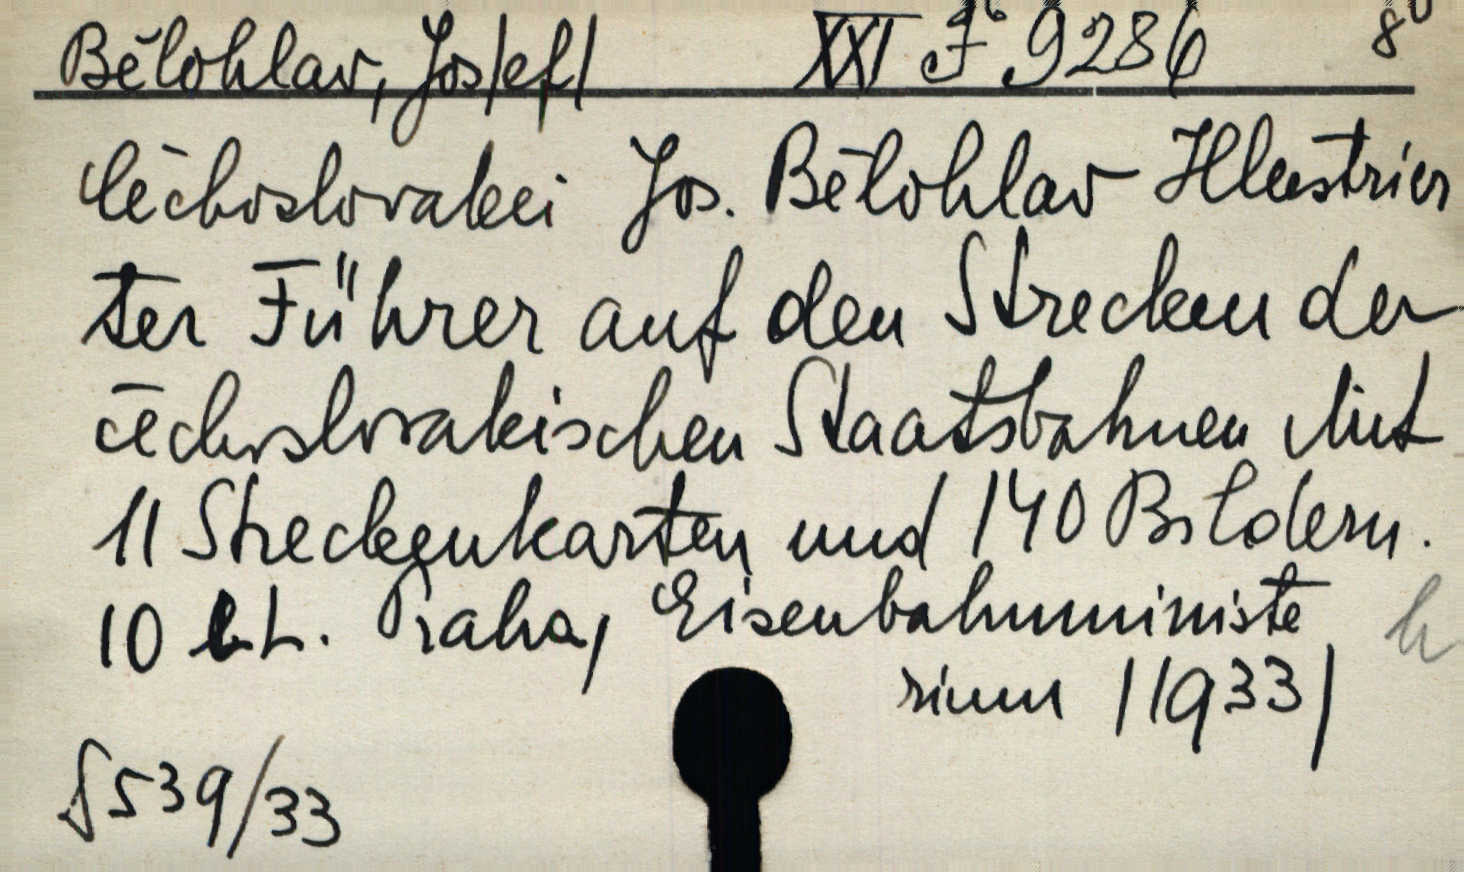 Bělohlav, Jos/ef/ XXI F 9286 8°
Čechoslovakei Jos. Bělohlav Illustrier
ter Führer auf den Strecken der
čechoslovakischen Staatsbahnen Mit
11 Streckenkarten und 140 Bildern.
10 LL. Praha, Eisenbahnministe
rium /1933/
§539/33